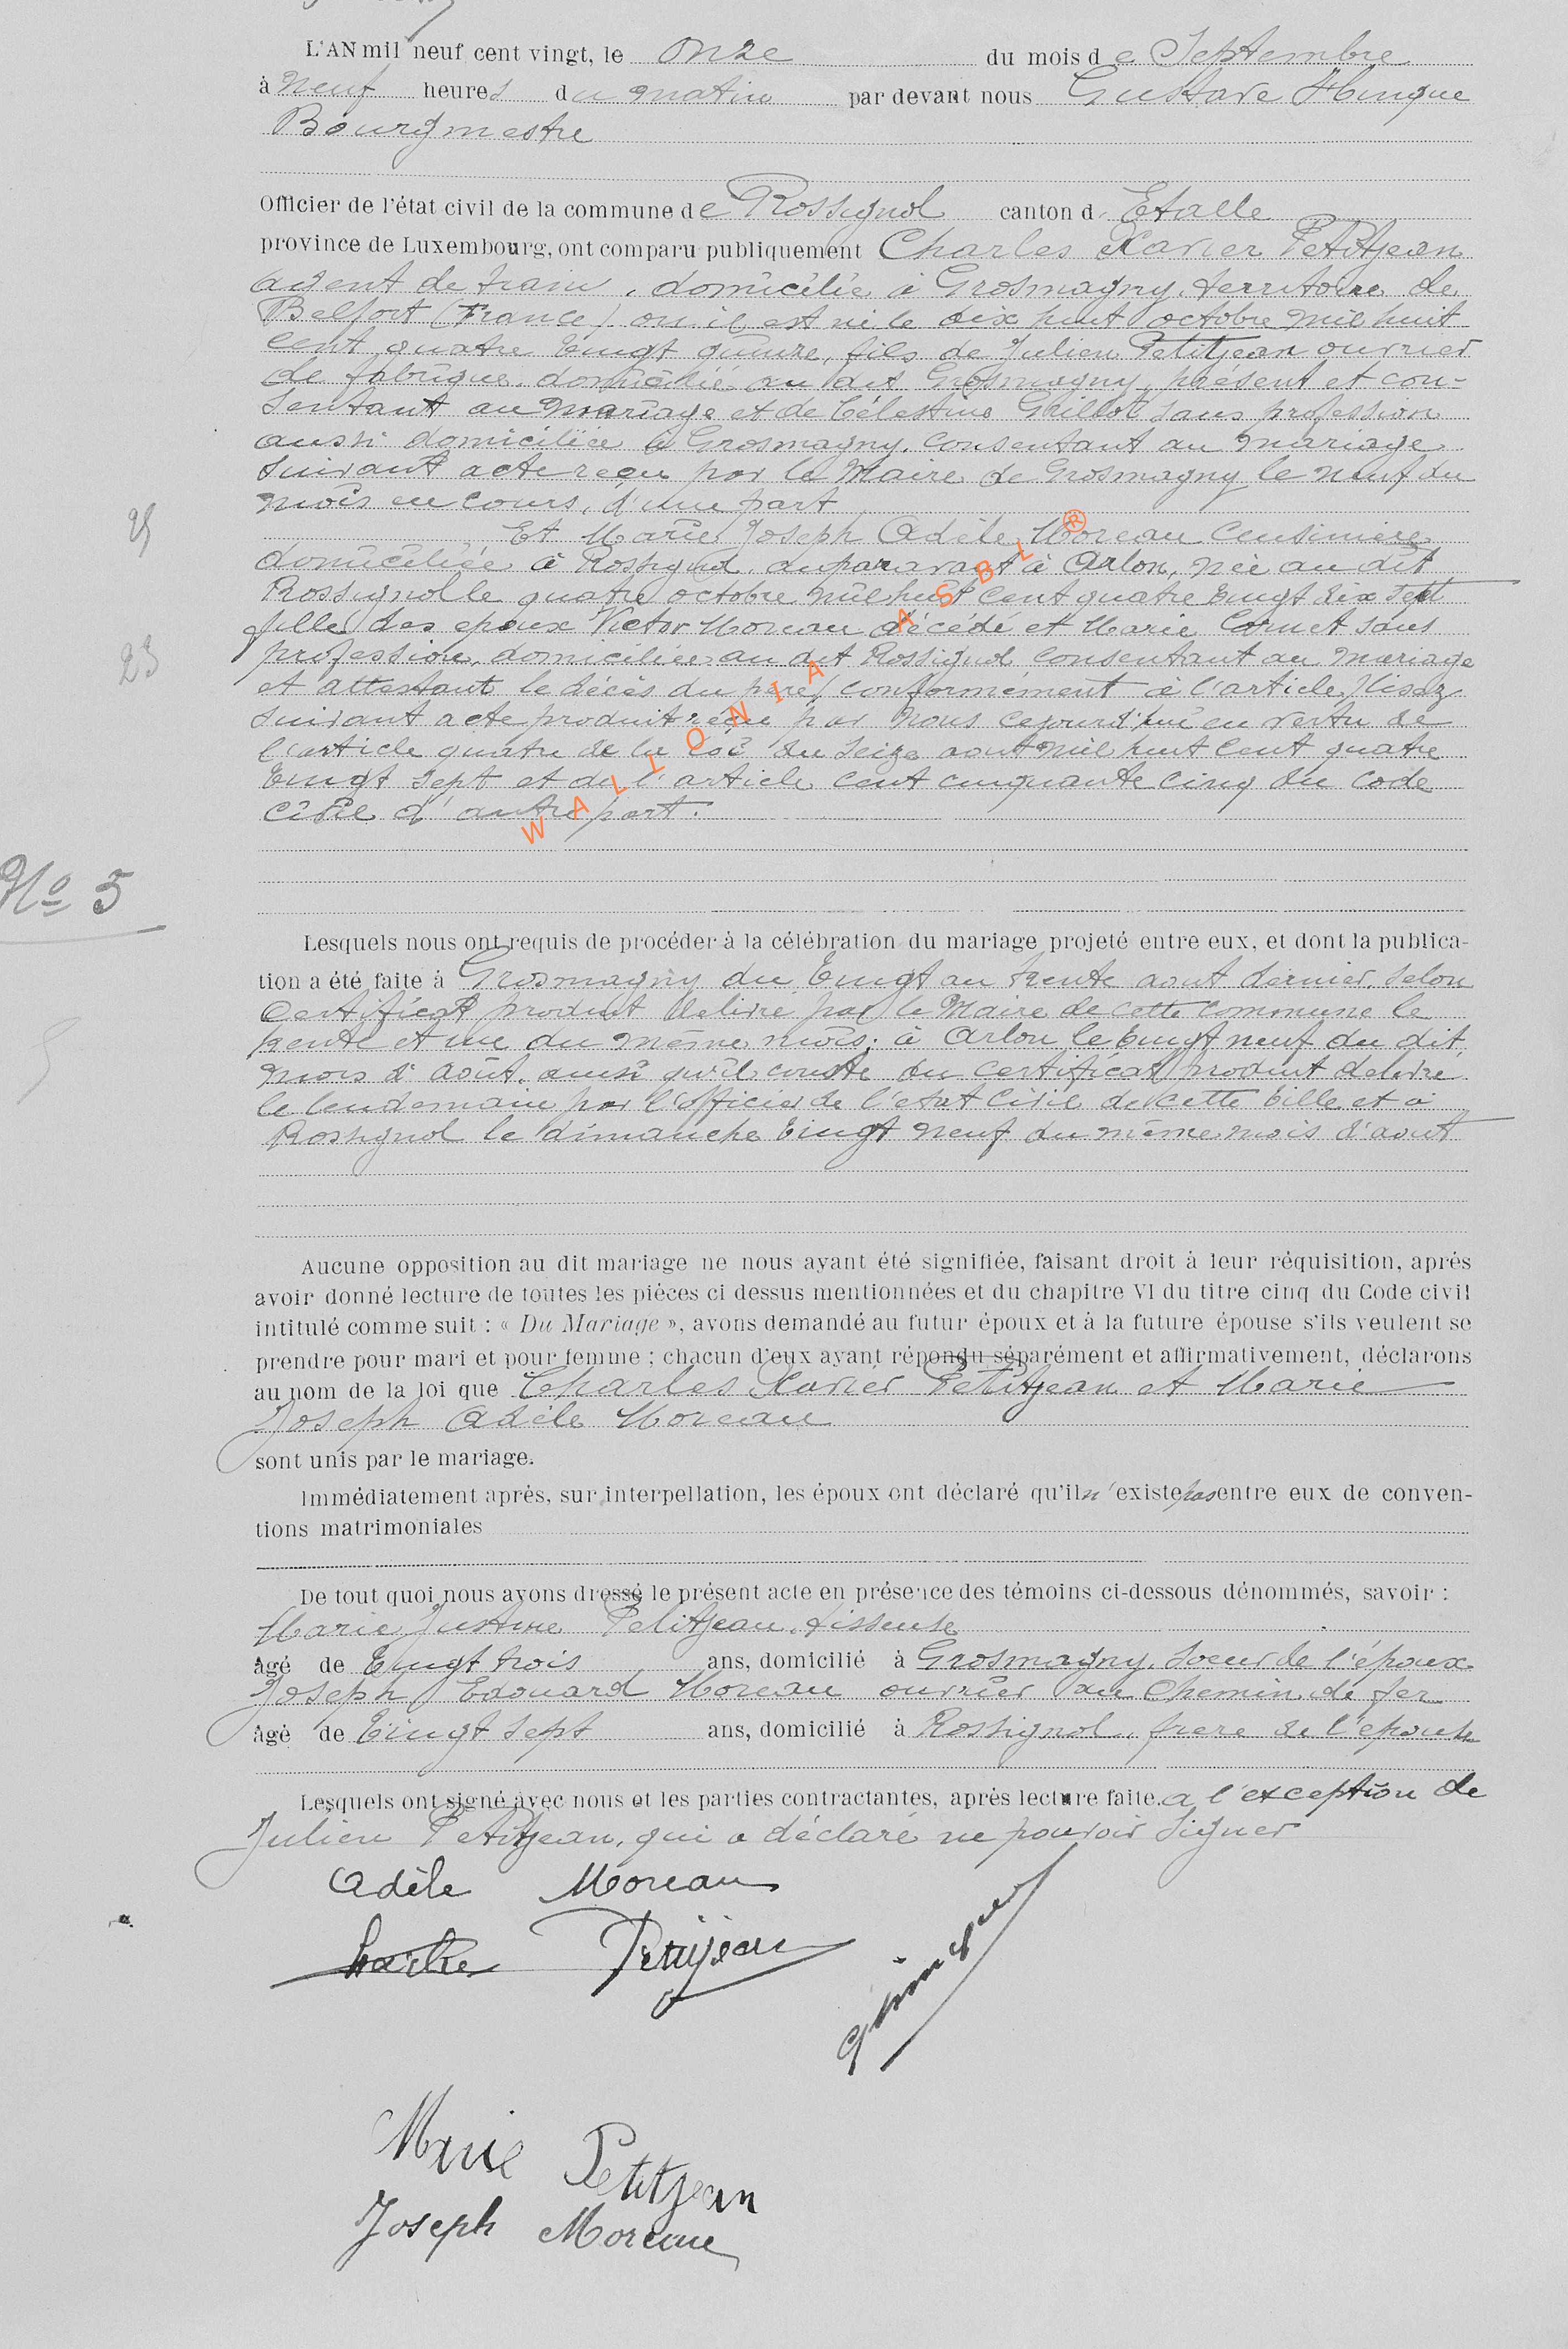 L'AN mil neuf cent vingt, le onze du mois de Septembre
à neuf heures du matin par devant nous Gustave Hinque
Bourgmestre
Officier de l'état civil de la commune de Rossignol canton d. Etalle
province de Luxembourg, ont comparu publiquement Charles Xavier Petitjean
agent de train, domicilié à Grosmagny, territoire de
Belfort (France) où il est né le dix huit octobre mil huit
cent quatre vingt quinze, fils de Julien Petitjean ouvrier
de fabrique domicilié au dit Grosmagny, présent et con-
sentant au mariage et de Célestine Grillot sans profession
aussi domiciliée à Grosmagny, consentant au mariage
suivant acte reçu par le Maire de Grosmagny le neuf du
mois en cours, d'une part
Et Marie Joseph Adèle Moreau Cuisinière
domiciliée à Rossignol auparavant à Arlon, née au dit
Rossignol le quatre octobre mil huit cent quatre vingt dix sept
fille des époux Victor Moreau décédé et Marie Cornet sans
profession, domiciliée au dit Rossignol consentant au mariage
et attestant le décès du père, conformément à l'article (lisez
suivant acte produit reçu par nous cejourd'hui en vertu de
l'article quatre de la loi du seize aout mil huit cent quatre
vingt sept et de l'article cent cinquante cinq du code
civil d'autre part.
25
23
No 5
WALLONIA ASBL ®
Lesquels nous ont requis de procéder à la célébration du mariage projeté entre eux, et dont la publica-
tion a été faite à Grosmagny du vingt au trente aout dernier, selon
certificat produit délivré par le Maire de cette commune le
trente et une du même mois; à Arlon le vingt neuf du dit
mois d'août, ainsi qu'il conste du certificat produit délivré
le lendemain par l'officier de l'état civil de cette ville et à
Rossignol le dimanche vingt neuf du même mois d'aout
Aucune opposition au dit mariage ne nous ayant été signifiée, faisant droit à leur réquisition, après
avoir donné lecture de toutes les pièces ci dessus mentionnées et du chapitre VI du titre cinq du Code civil
intitulé comme suit : « Du Mariage », avons demandé au futur époux et à la future épouse s'ils veulent se
prendre pour mari et pour femme ; chacun d'eux ayant répondu séparément et affirmativement, déclarons
au nom de la loi que Charles Xavier Petitjean et Marie
Joseph Adèle Moreau
sont unis par le mariage.
Immédiatement après, sur interpellation, les époux ont déclaré qu'il n'existe pas entre eux de conven-
tions matrimoniales
De tout quoi nous avons dressé le présent acte en présence des témoins ci-dessous dénommés, savoir :
Marie Justine Petitjean, tisseuse
âgé de vingt trois ans, domicilié à Grosmagny, soeur de l'époux
Joseph Edouard Moreau ouvrier au Chemin de fer
âgé de vingt sept ans, domicilié à Rossignol, frere de l'épouse
Lesquels ont signé avec nous et les parties contractantes, après lecture faite, a l'exception de
Julien Petitjean, qui a déclaré ne pouvoir signer
Adèle Moreau
Petitjean
Marie Petitjean
Joseph Moreau